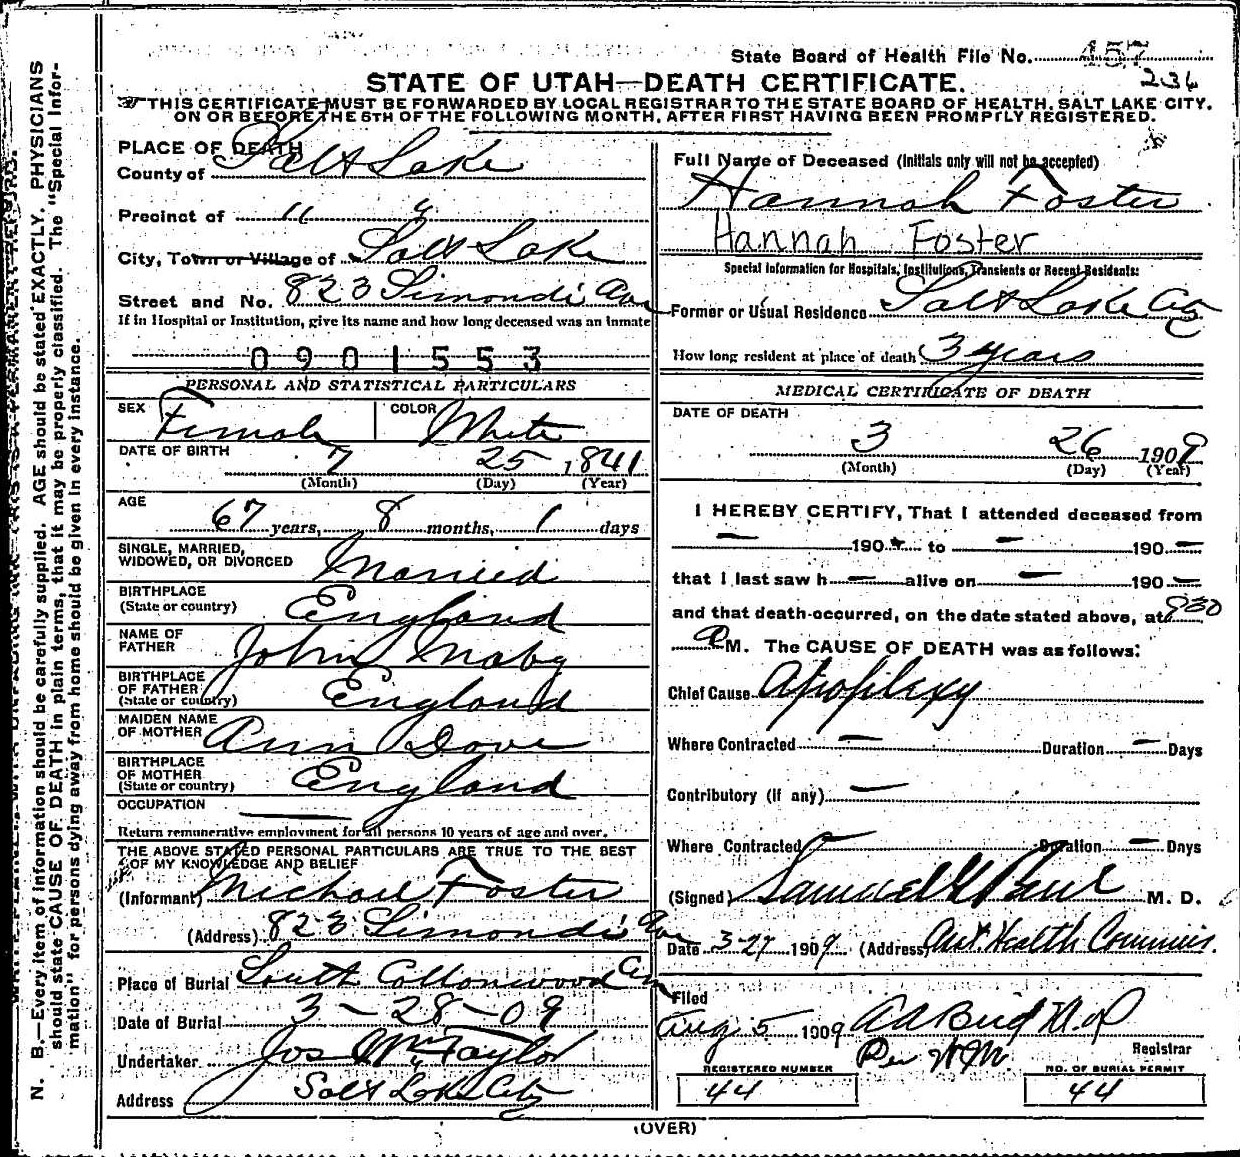 State Board of Health File No. 457
236
STATE OF UTAH—DEATH CERTIFICATE.
THIS CERTIFICATE MUST BE FORWARDED BY LOCAL REGISTRAR TO THE STATE BOARD OF HEALTH, SALT LAKE CITY,
ON OR BEFORE THE 5TH OF THE FOLLOWING MONTH, AFTER FIRST HAVING BEEN PROMPTLY REGISTERED.
PLACE OF DEATH
County of Salt Lake
Precinct of " "
City, Town or Village of Salt Lake
Street and No. 823 Simondi Ave
If in Hospital or Institution, give its name and how long deceased was an inmate
0901553
PERSONAL AND STATISTICAL PARTICULARS
SEX Female COLOR White
DATE OF BIRTH 7 25 1841
(Month) (Day) (Year)
AGE 67 years, 8 months, 1 days
SINGLE, MARRIED,
WIDOWED, OR DIVORCED Married
BIRTHPLACE
(State or country) England
NAME OF
FATHER John Maby
BIRTHPLACE
OF FATHER
(State or country) England
MAIDEN NAME
OF MOTHER Ann Dove
BIRTHPLACE
OF MOTHER
(State or country) England
OCCUPATION —
Return remunerative employment for all persons 10 years of age and over.
THE ABOVE STATED PERSONAL PARTICULARS ARE TRUE TO THE BEST
OF MY KNOWLEDGE AND BELIEF
(Informant) Michael Foster
(Address) 823 Simondi Ave
Place of Burial South Cottonwood Cem
Date of Burial 3-28-09
Undertaker Jos Wm Taylor
Address Salt Lake City
Full Name of Deceased (Initials only will not be accepted)
Hannah Foster
Hannah Foster
Special Information for Hospitals, Institutions, Transients or Recent Residents:
Former or Usual Residence Salt Lake City
How long resident at place of death 3 years
MEDICAL CERTIFICATE OF DEATH
DATE OF DEATH
3 26 1909
(Month) (Day) (Year)
I HEREBY CERTIFY, That I attended deceased from
— 190 to — 190 —
that I last saw h — alive on — 190 —
and that death occurred, on the date stated above, at 930
P M. The CAUSE OF DEATH was as follows:
Chief Cause Apoplexy
Where Contracted — Duration — Days
Contributory (if any) —
Where Contracted — Duration — Days
(Signed) Samuel G Paul M. D.
Date 3-27 1909 (Address) Asst. Health Commis.
Filed
Aug 5 1909 A A Bird M.D
Per W.M. Registrar
REGISTERED NUMBER NO. OF BURIAL PERMIT
44 44
(OVER)
N. B.—Every item of information should be carefully supplied. AGE should be stated EXACTLY. PHYSICIANS
should state CAUSE OF DEATH in plain terms, that it may be properly classified. The "Special Infor-
mation" for persons dying away from home should be given in every instance.